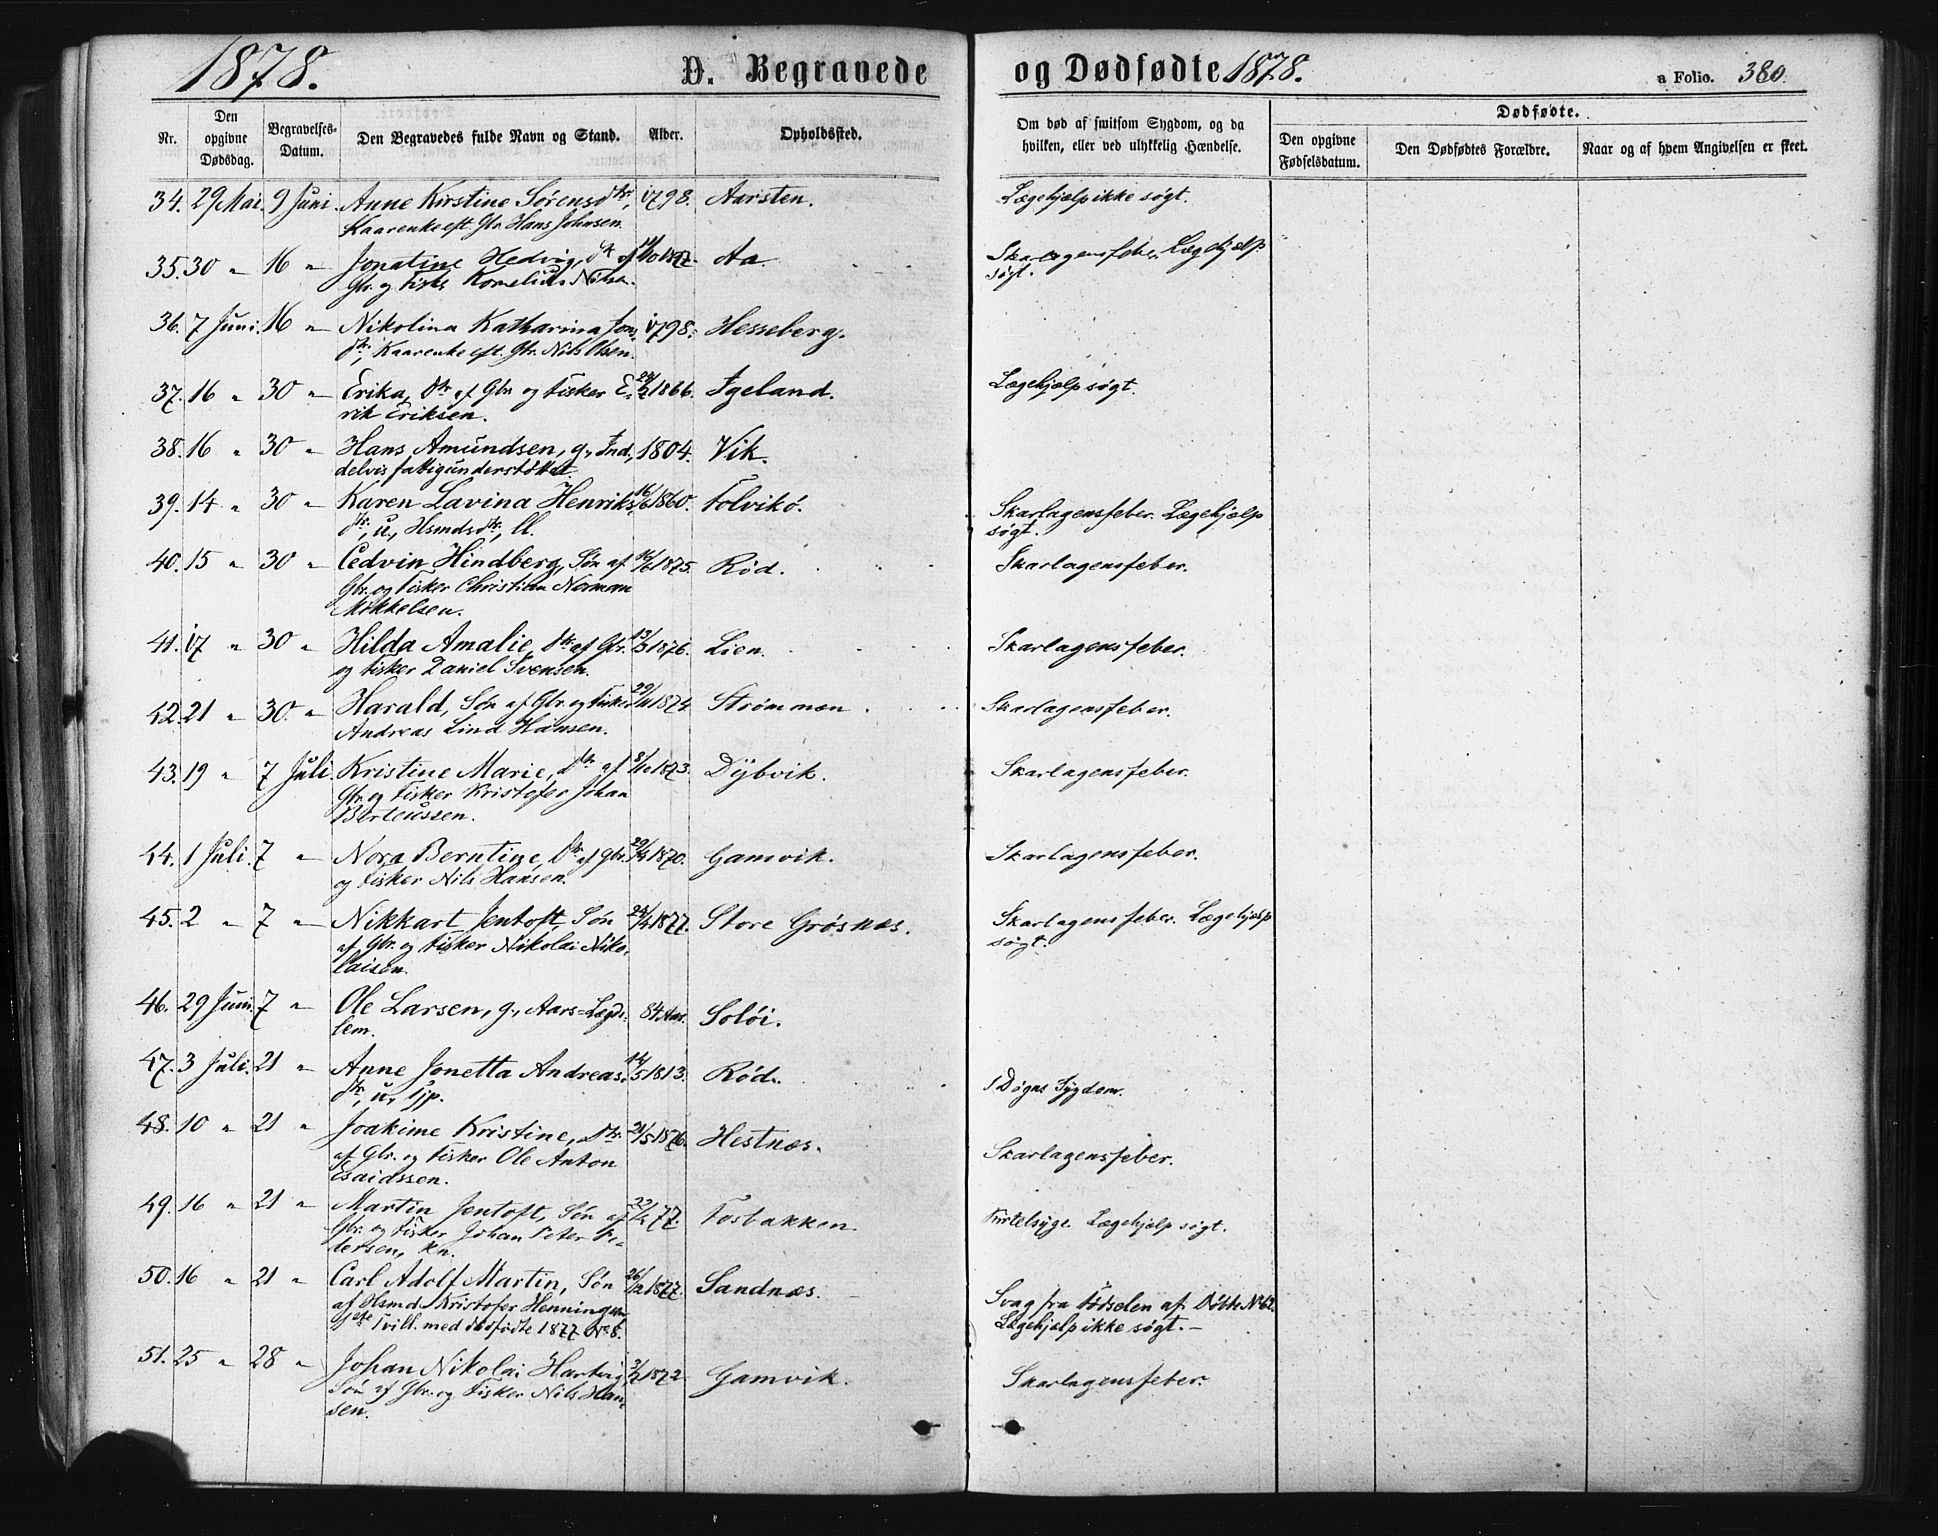 1878. D. Begravede og Dødfødte 1878. a Folio. 380.
Nr. Den opgivne Dødsdag. Begravelses-Datum. Den Begravedes fulde Navn og Stand. Alder. Opholdssted. Om død af smitsom Sygdom, og da hvilken, eller ved ulykkelig Hændelse. Dødfødte. Den opgivne Fødselsdatum. Den Dødfødtes Forældre. Naar og af hvem Angivelsen er skeet.
34. 29 Mai. 9 Juni. Anne Kirstine Sørensdtr., 1798. Aarsten. Lægehjælp ikke søgt.
Kaarenke eft. Gbr. Hans Johnsen.
35. 30 " 16 " Jonatine Hedvig, Dtr. af Aa. Skarlagensfeber. Lægehjælp
Gbr. og Fisker Kornelius søgt.
36. 7 Juni. 16 " Nikolina Katharina Jons- 1798. Hesseberg.
dtr., Kaarenke eft. Gbr. Nils Olsen.
37. 16 " 30 " Erika, Dtr. af Gbr. og Fisker E- 1866. Igeland. Lægehjælp søgt.
rik Eriksen.
38. 16 " 30 " Hans Amundsen, g., Ind., 1804. Vik.
delvis fattigunderstøttet.
39. 14 " 30 " Karen Lavina Henriks- 16/6 1860. Tolvikö. Skarlagensfeber. Lægehjælp
dtr., u., Hsmdsdtr., søgt.
40. 15 " 30 " Cedvin Hindberg, Søn af 16/6 1875. Röd. Skarlagensfeber.
Gbr. og Fisker Christian Norman
Mikkelsen.
41. 17 " 30 " Hilda Amalie, Dtr. af Gbr. 1876. Lien. Skarlagensfeber.
og Fisker Daniel Svensen.
42. 21 " 30 " Harald, Søn af Gbr. og Fisker 29/11 1874. Strømmen. Skarlagensfeber.
Andreas Lind Hansen.
43. 19 " 7 Juli. Kristine Marie, Dtr. af 1873. Dybvik. Skarlagensfeber.
Gbr. og Fisker Kristofer Johan
Berteussen.
44. 1 Juli. 7 " Nora Berntine, Dtr. af Gbr. 1870. Gamvik. Skarlagensfeber.
og Fisker Nils Hansen.
45. 2 " 7 " Nikkart Jentoft, Søn 1877. Store GröSnæs. Skarlagensfeber. Lægehjælp
af Gbr. og Fisker Nikolai Niko- søgt.
laisen.
46. 29 Juni. 7 " Ole Larsen, g., Aars-Lægds- 84 Aar. Solöi.
lem.
47. 3 Juli. 21 " Anne Jonetta Andreas- 14/5 1813. Röd. Døgns Sygdom.
dtr., u., Tjp.
48. 10 " 21 " Joakime Kristine, Dtr. 1876. Hestnæs. Skarlagensfeber.
af Gbr. og Fisker Ole Anton
Esaidssen.
49. 16 " 21 " Martin Jentoft, Søn af 77. Fosbakken. Kirtelsyge. Lægehjælp søgt.
Gbr. og Fisker Johan Peter Pe-
dersen, kn.
50. 16 " 21 " Carl Adolf Martin, Søn 26/12 1877. Sandnæs. Svag fra Fødselen af. Døbte No 62.
af Hsmd. Kristofer Henningsen Lægehjælp ikke søgt. –
Tvill. med dødfødte 1877 No 8.
51. 25 " 28 " Johan Nikolai Hartvig, 1872. Gamvik. Skarlagensfeber.
Søn af Gbr. og Fisker Nils Han-
sen.